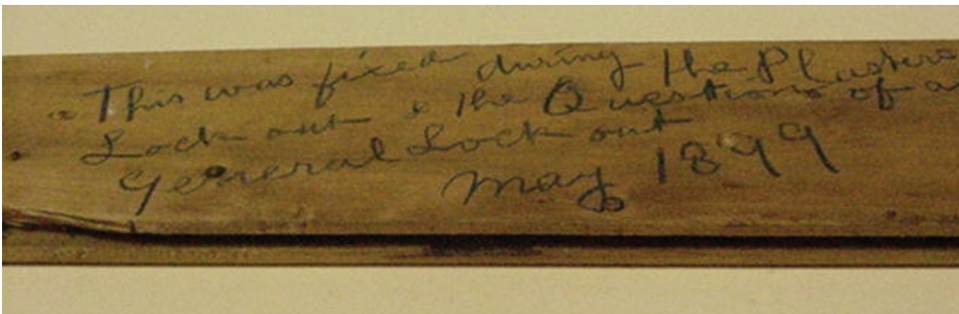 This was fixed during the Plasterers
Lock out & the Questions of a
General Lock out
May 1899